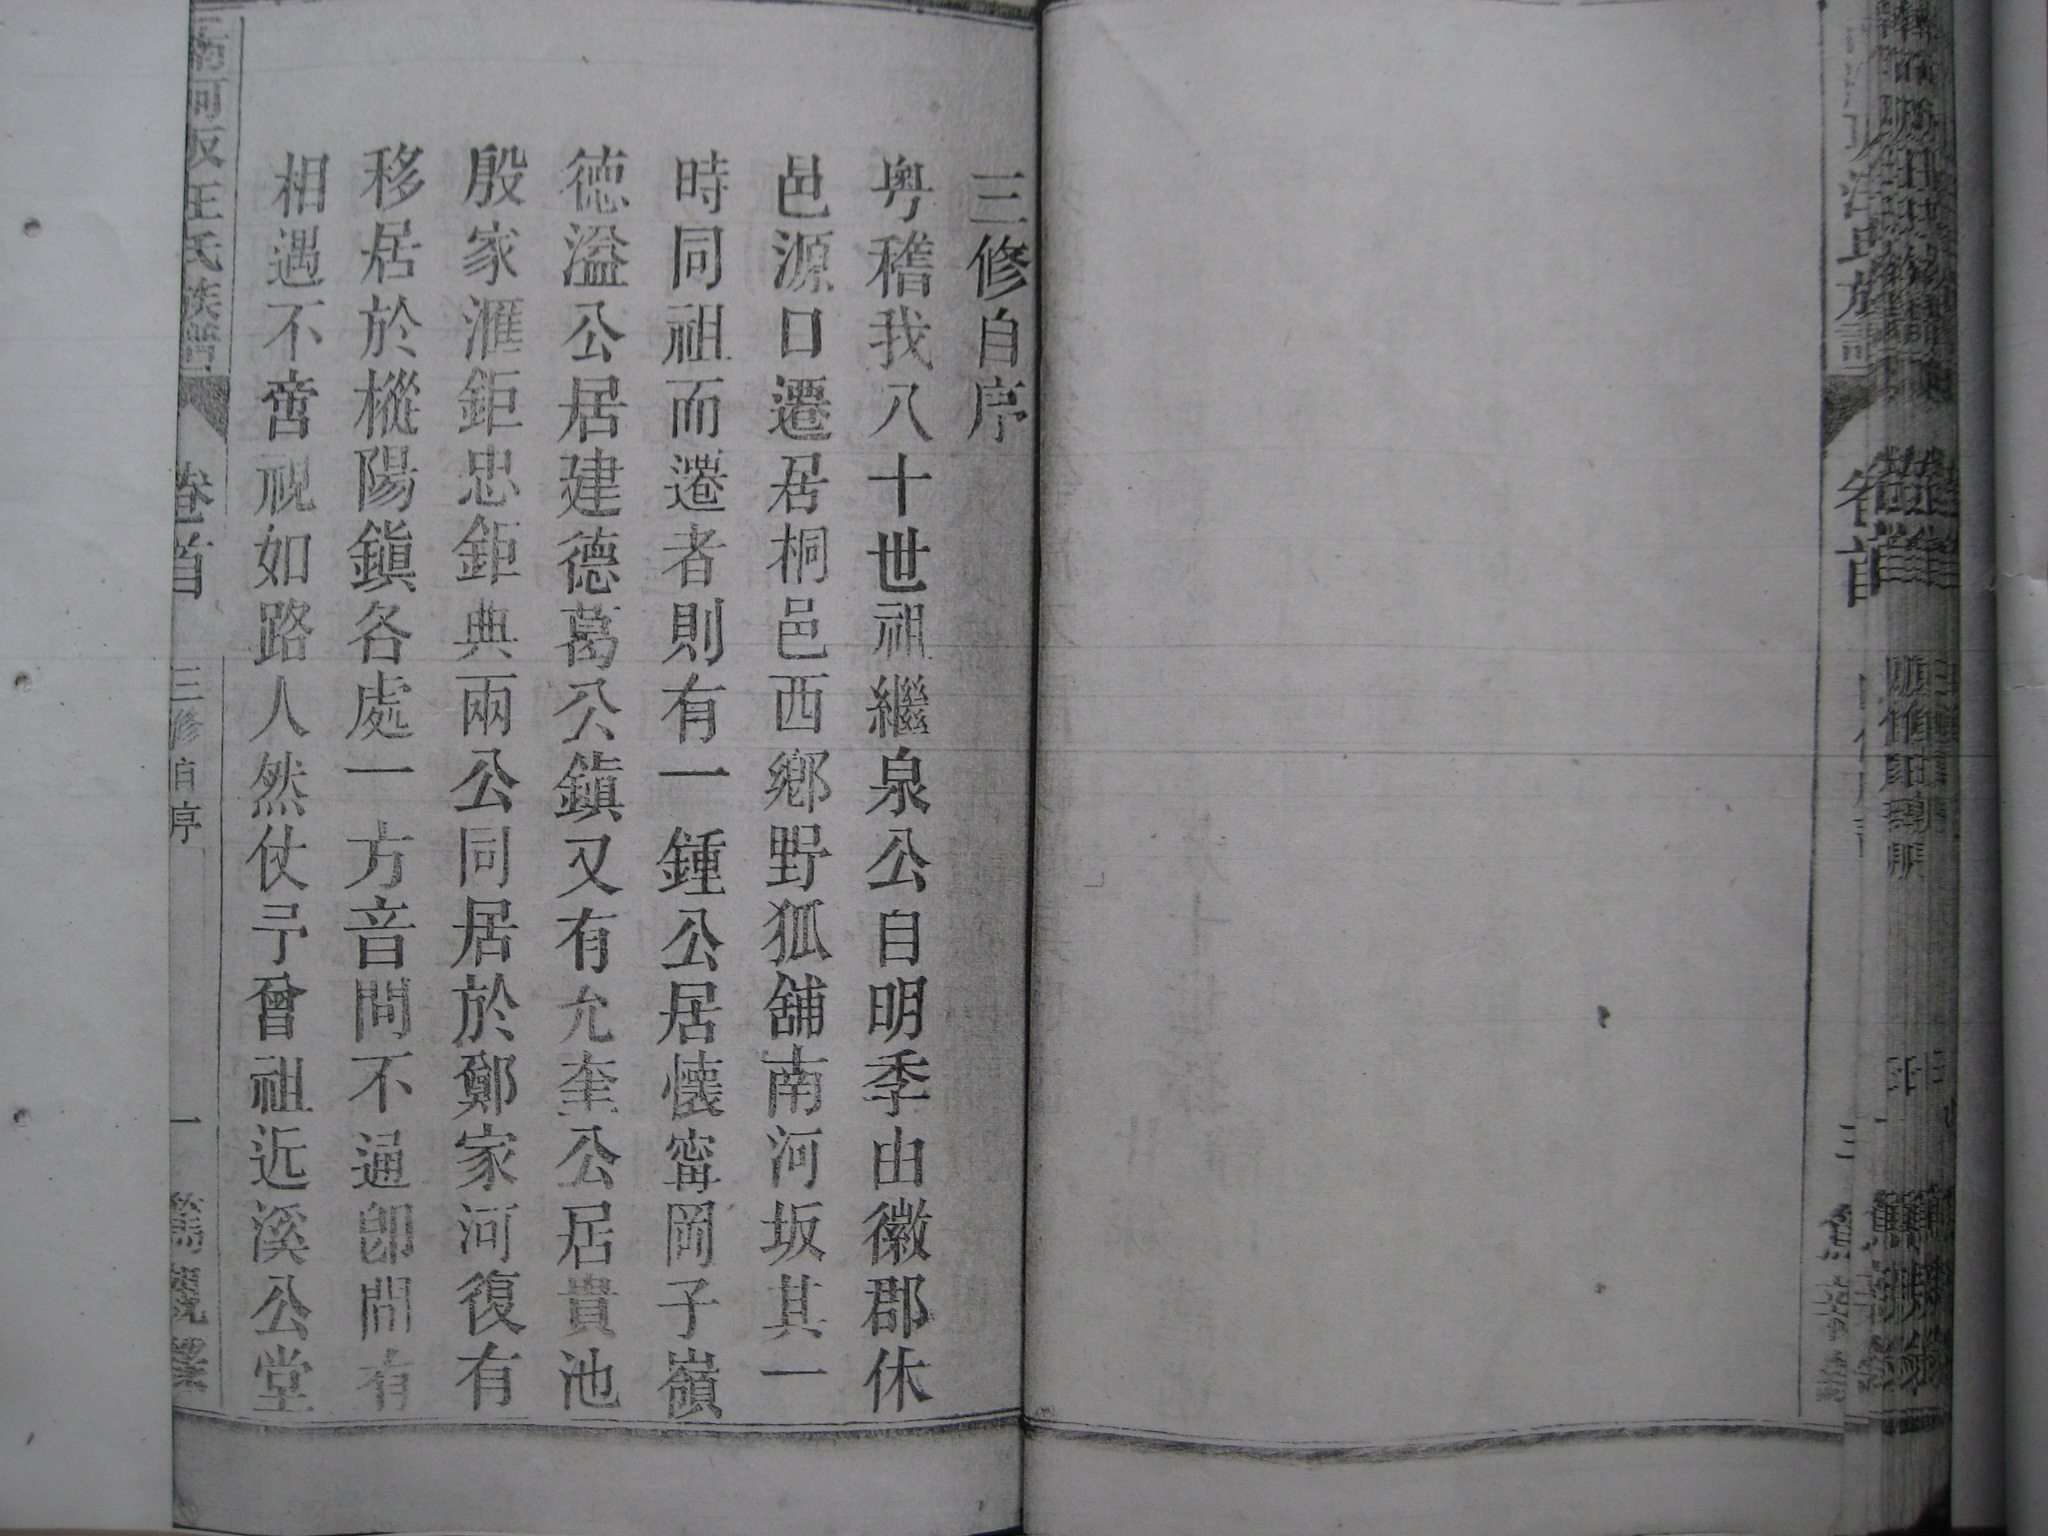 三修自序
粤稽我八十世祖繼泉公自明季由徽郡休
邑源口遷居桐邑西鄉野狐舖南河坂其一
時同祖而遷者則有一鍾公居懷甯岡子嶺
德溢公居建德葛公鎮又有允奎公居貴池
殷家滙鉅忠鉅典兩公同居於鄭家河復有
移居於樅陽鎮各處一方音問不通卽問有
相遇不啻視如路人然仗予曾祖近溪公堂
南河坂汪氏族譜 卷首 三修自序 一
汪氏族譜 卷首 三